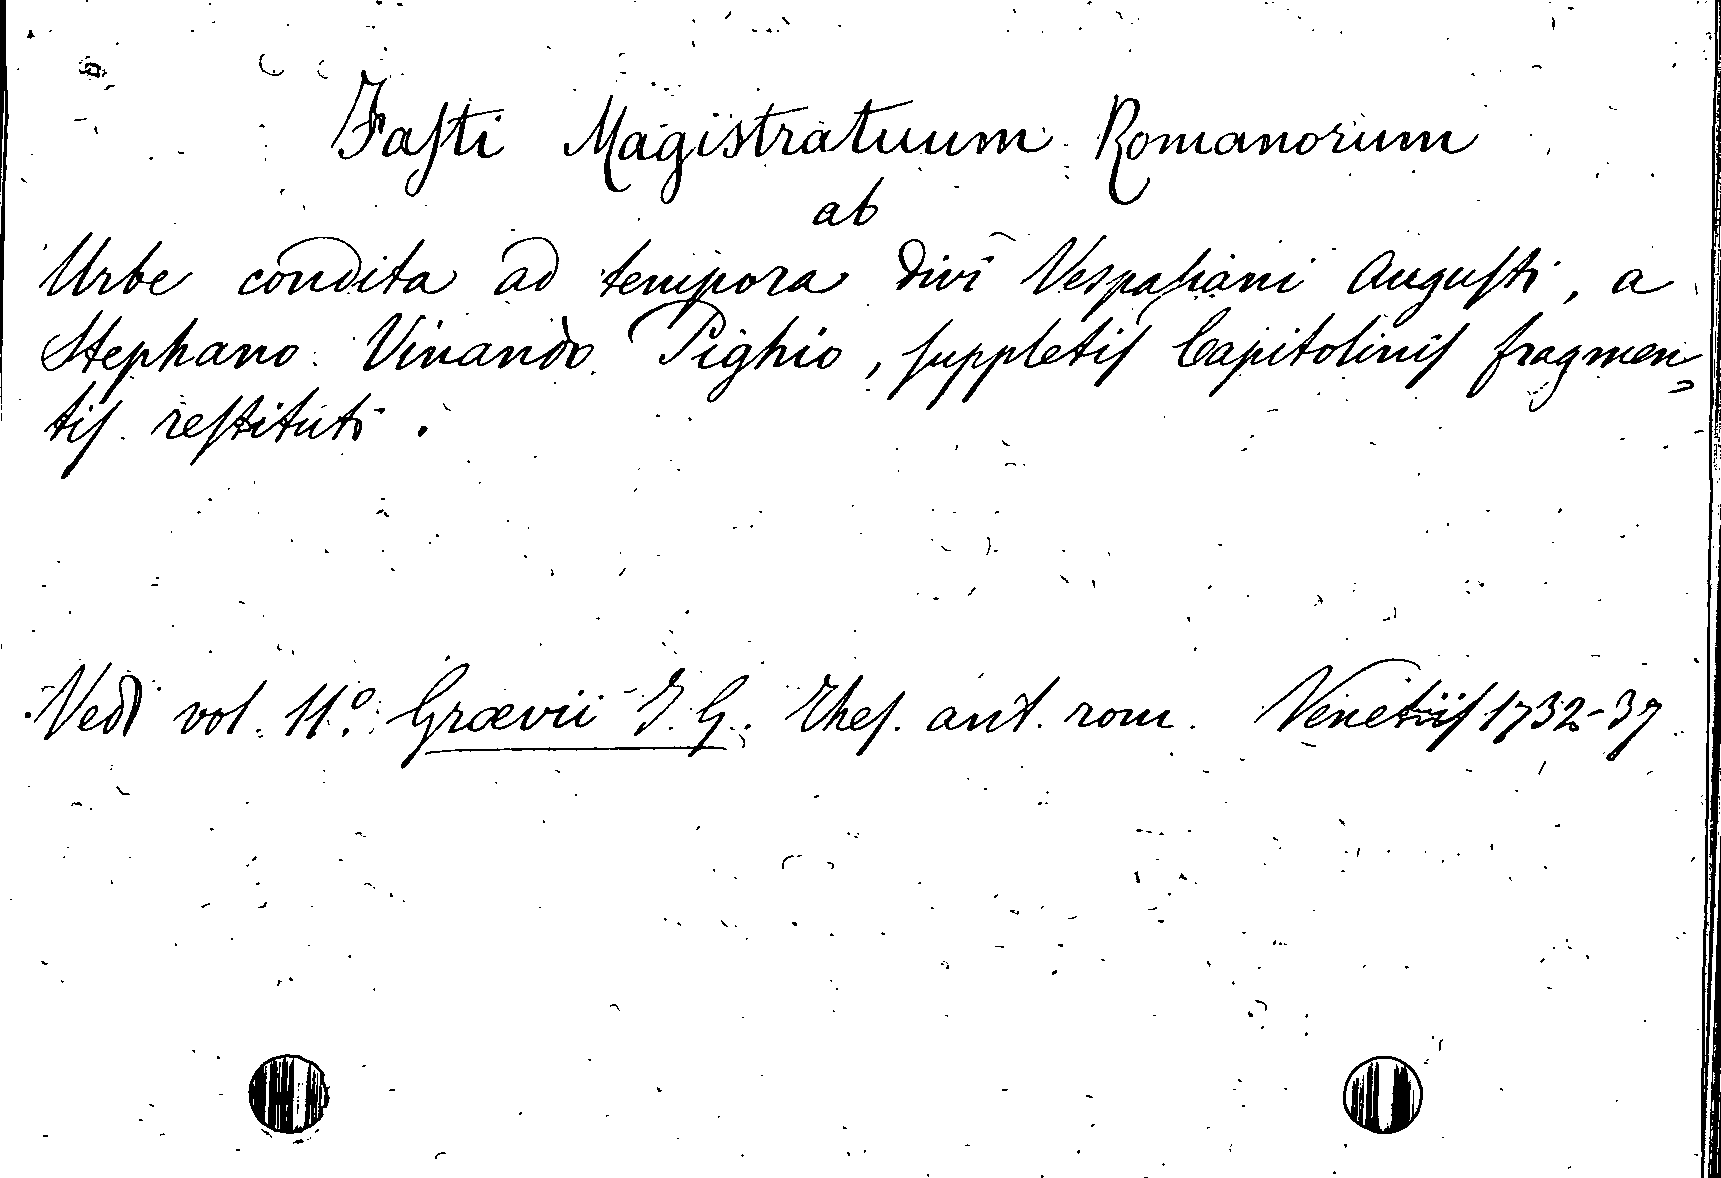 Faſti Magistratuum Romanorum
ab
Urbe condita ad tempora Divi Vespaſiani Auguſti, a
Stephano Vinando Pighio, ſuppletiſ Capitoliniſ fragmen=
tiſ reſtituti.
Vedi vol. 11.º Grævii I. G. Theſ. ant. rom. Venetiiſ 1732-37